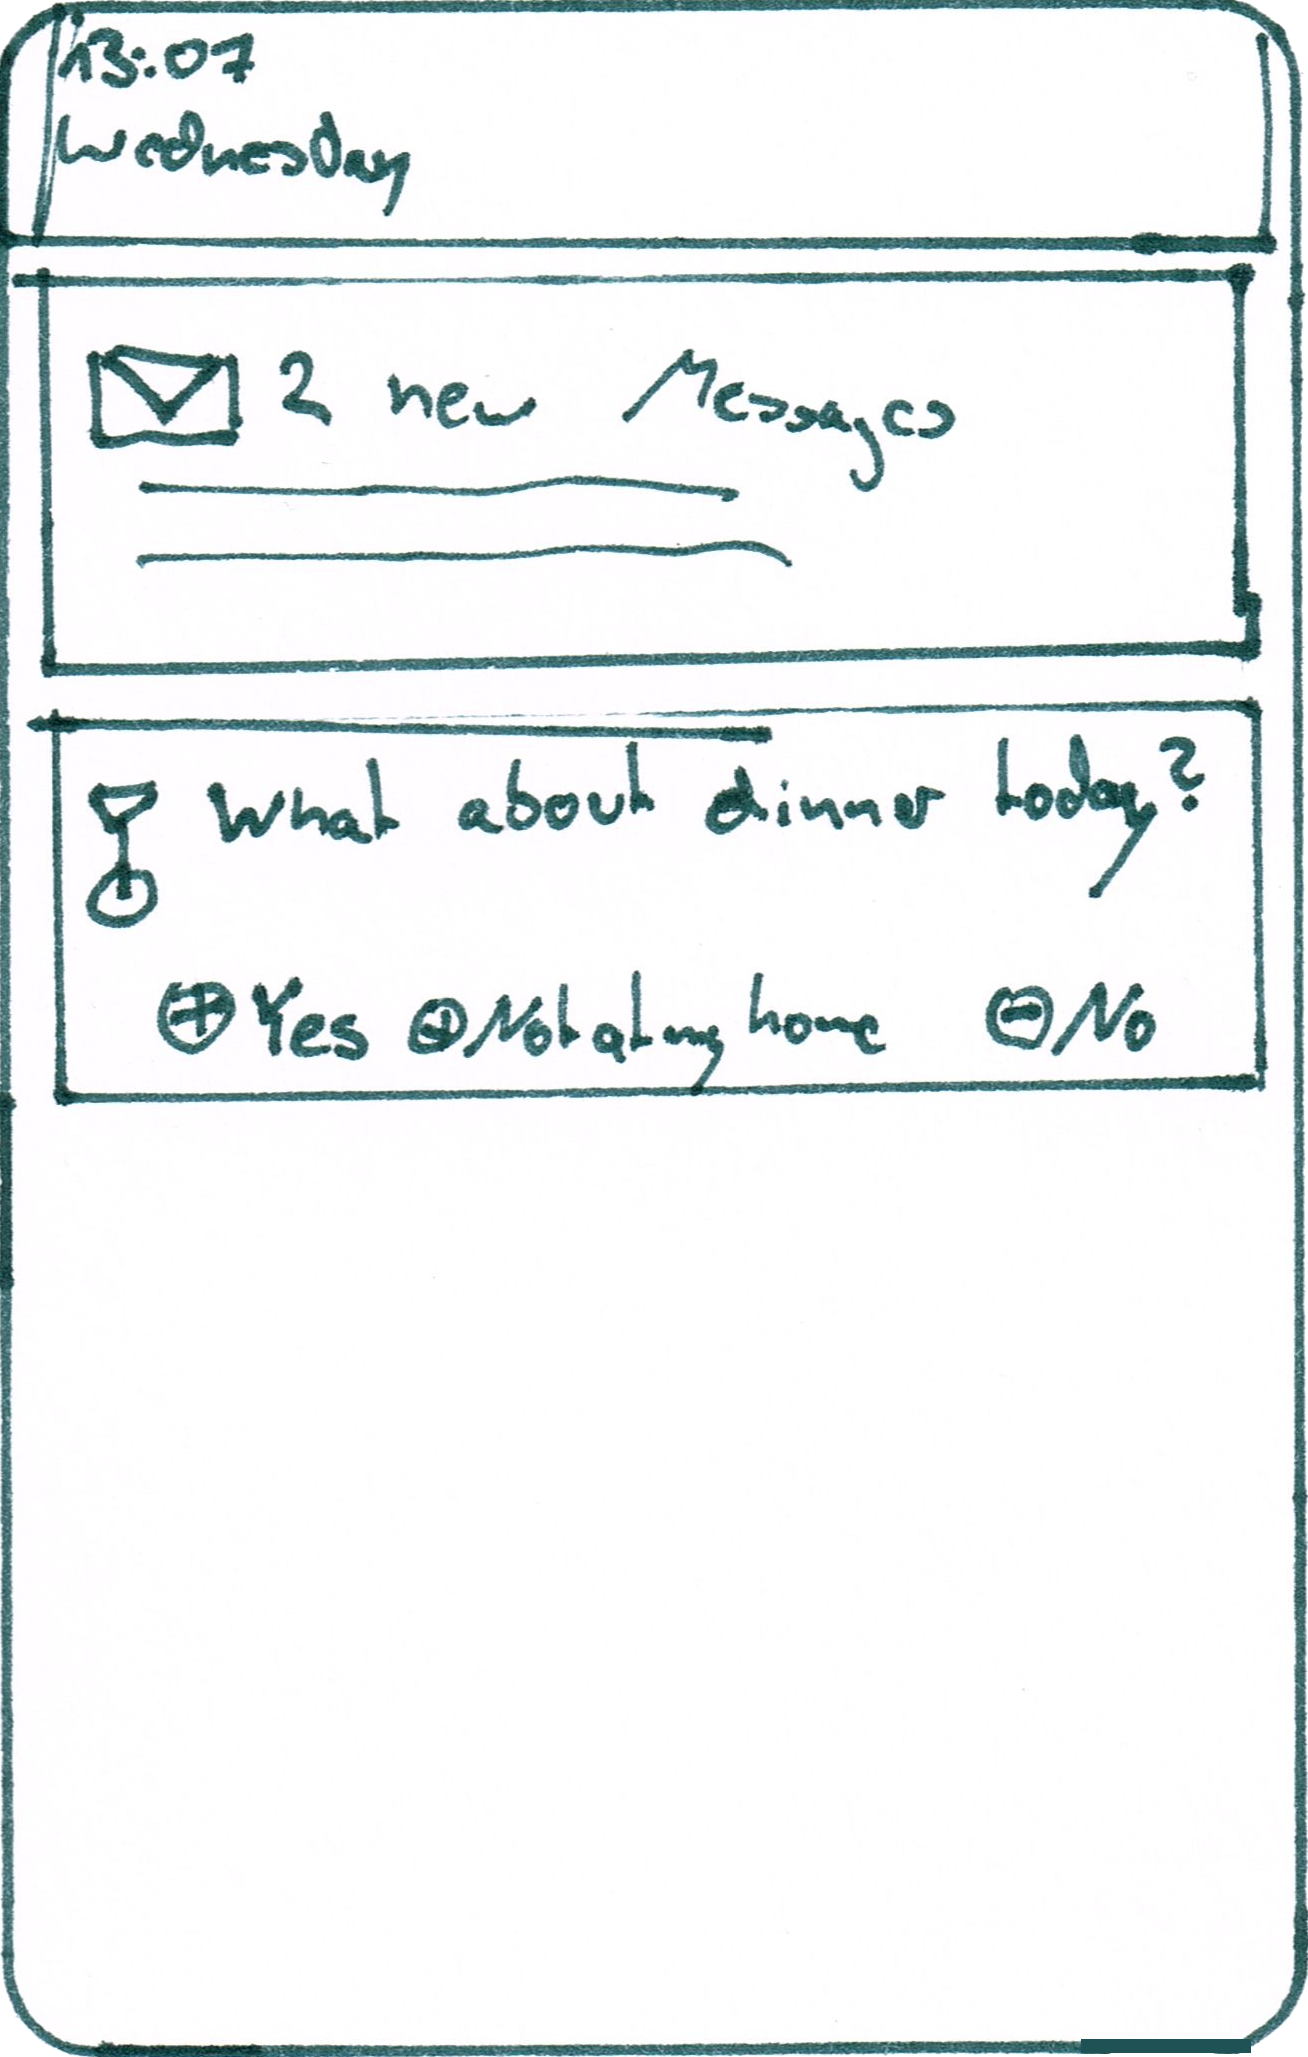 13:07
Wednesday
2 new Messages
What about dinner today?
Yes Not at my home No